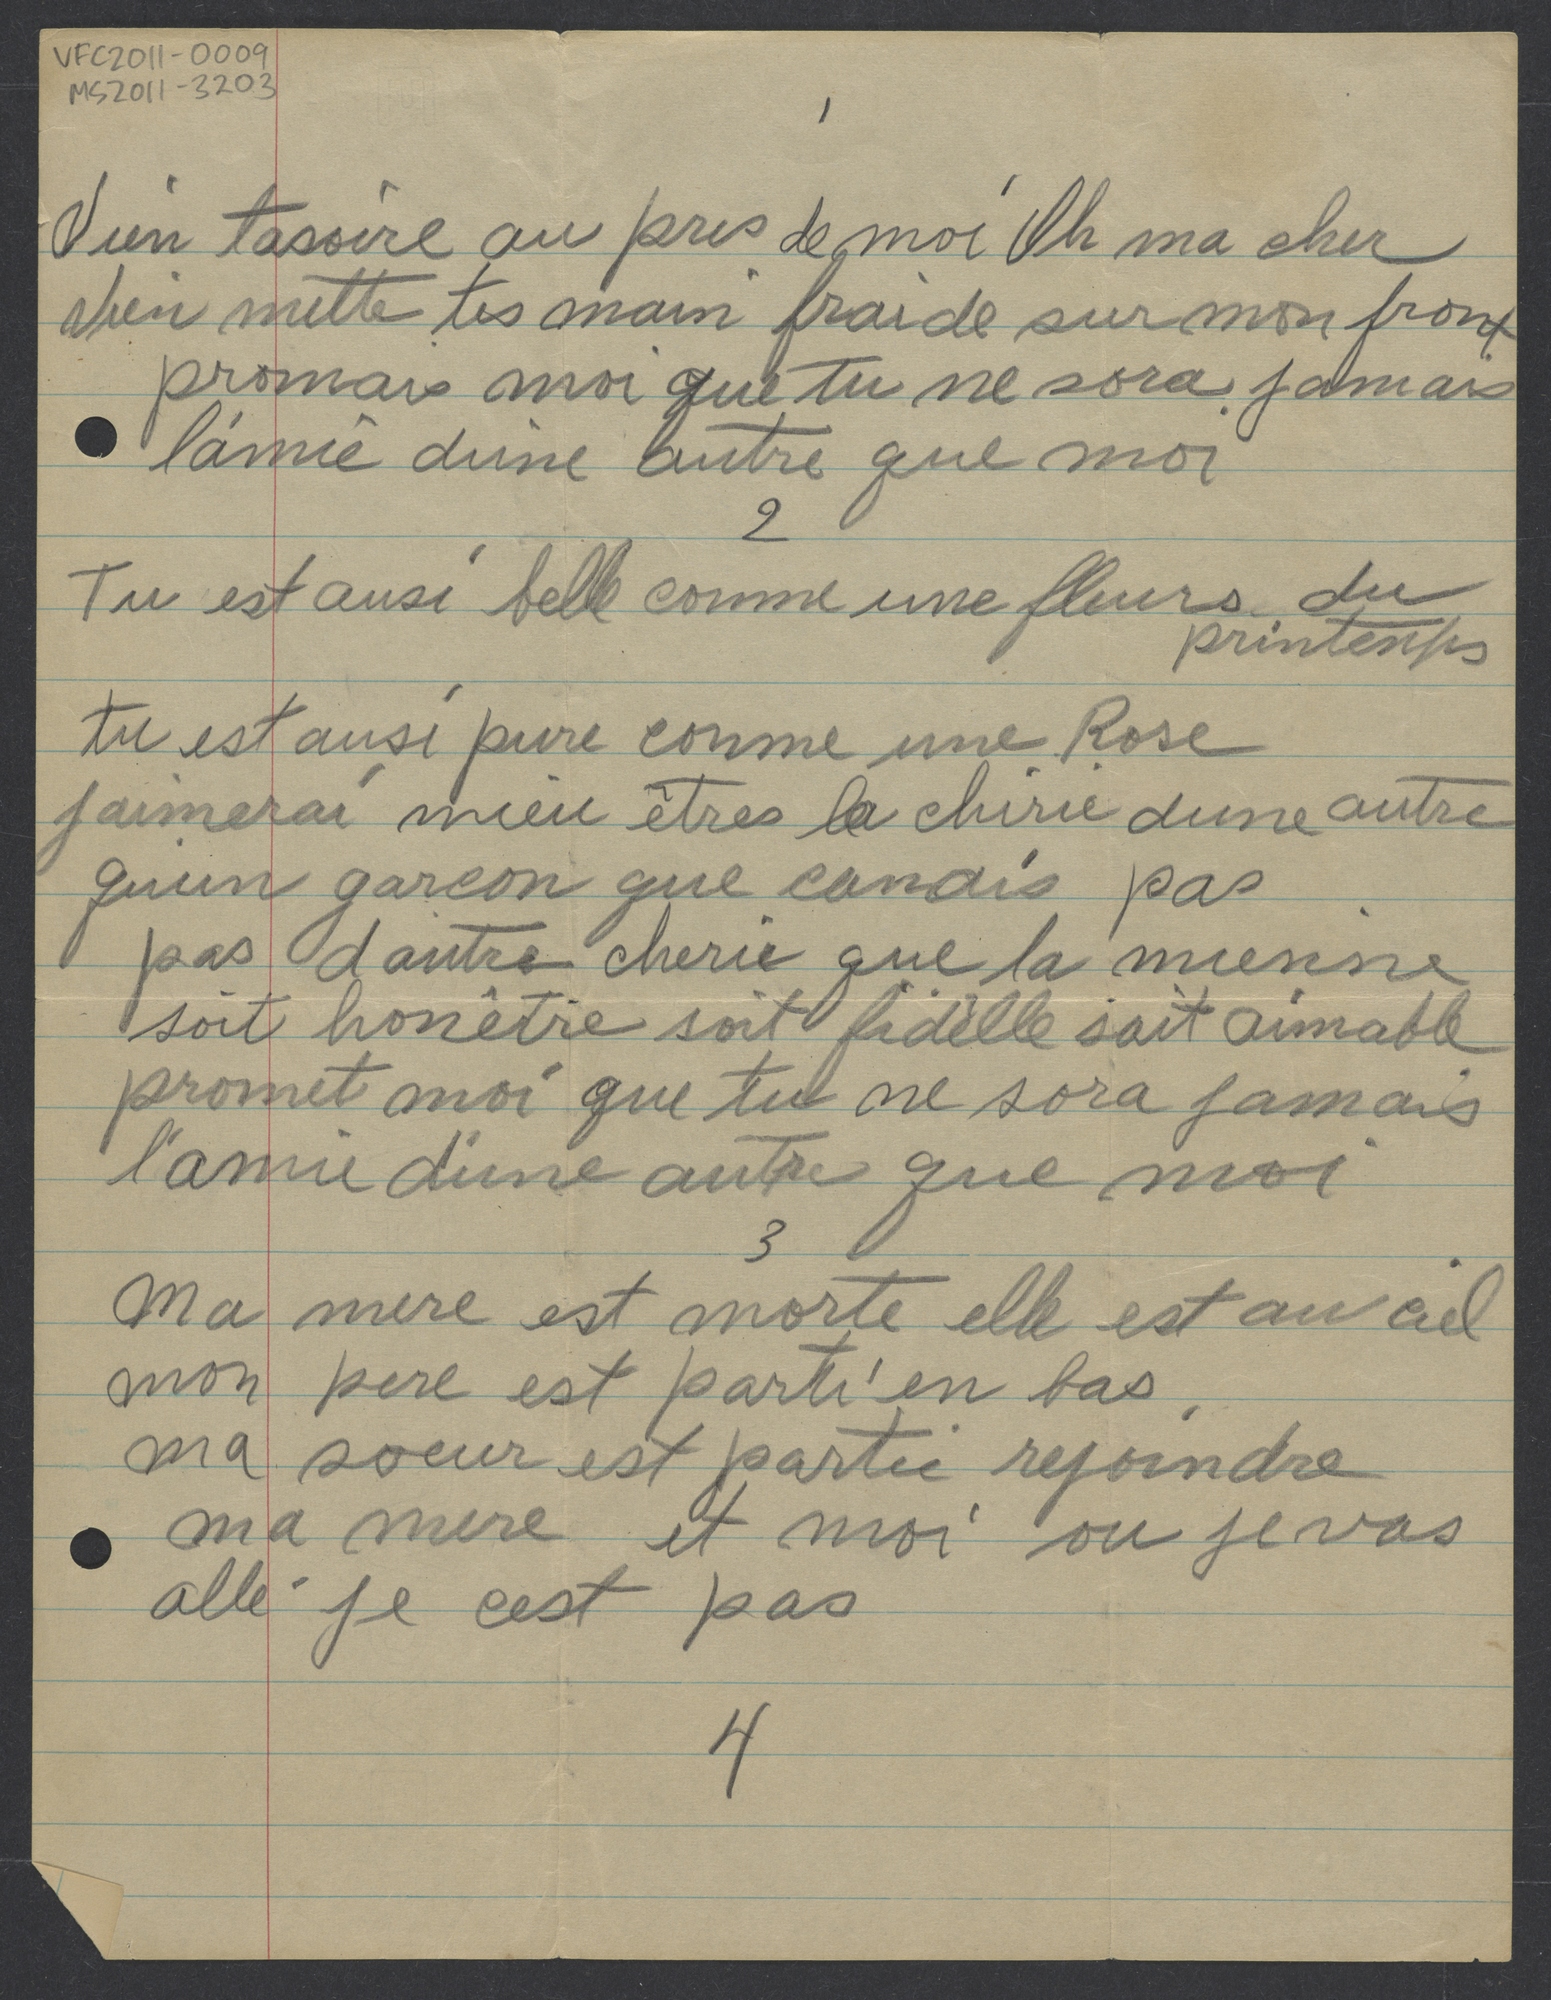 VFC2011-0009
MS2011-3203
1
Vien tasoire au pres de moi Oh ma cher
vien mette tes main fraide sur mon front
promais moi que tu ne sora jamais
l'amie d'une autre que moi
2
Tu est ausi belle comme une fleurs du
printemps
tu est ausi pure comme une Rose
jaimerai mieu êtres la chirie dune autre
qu'un garcon que conais pas
pas d'autre cherie que la mienne
soit honêtre soit fidèlle soit aimable
promet moi que tu ne sora jamais
l'amie d'une autre que moi
3
Ma mere est morte elle est au ciel
mon pere est parti en bas
ma soeur est partie rejoindre
ma mere et moi ou je vas
allé je cest pas
4